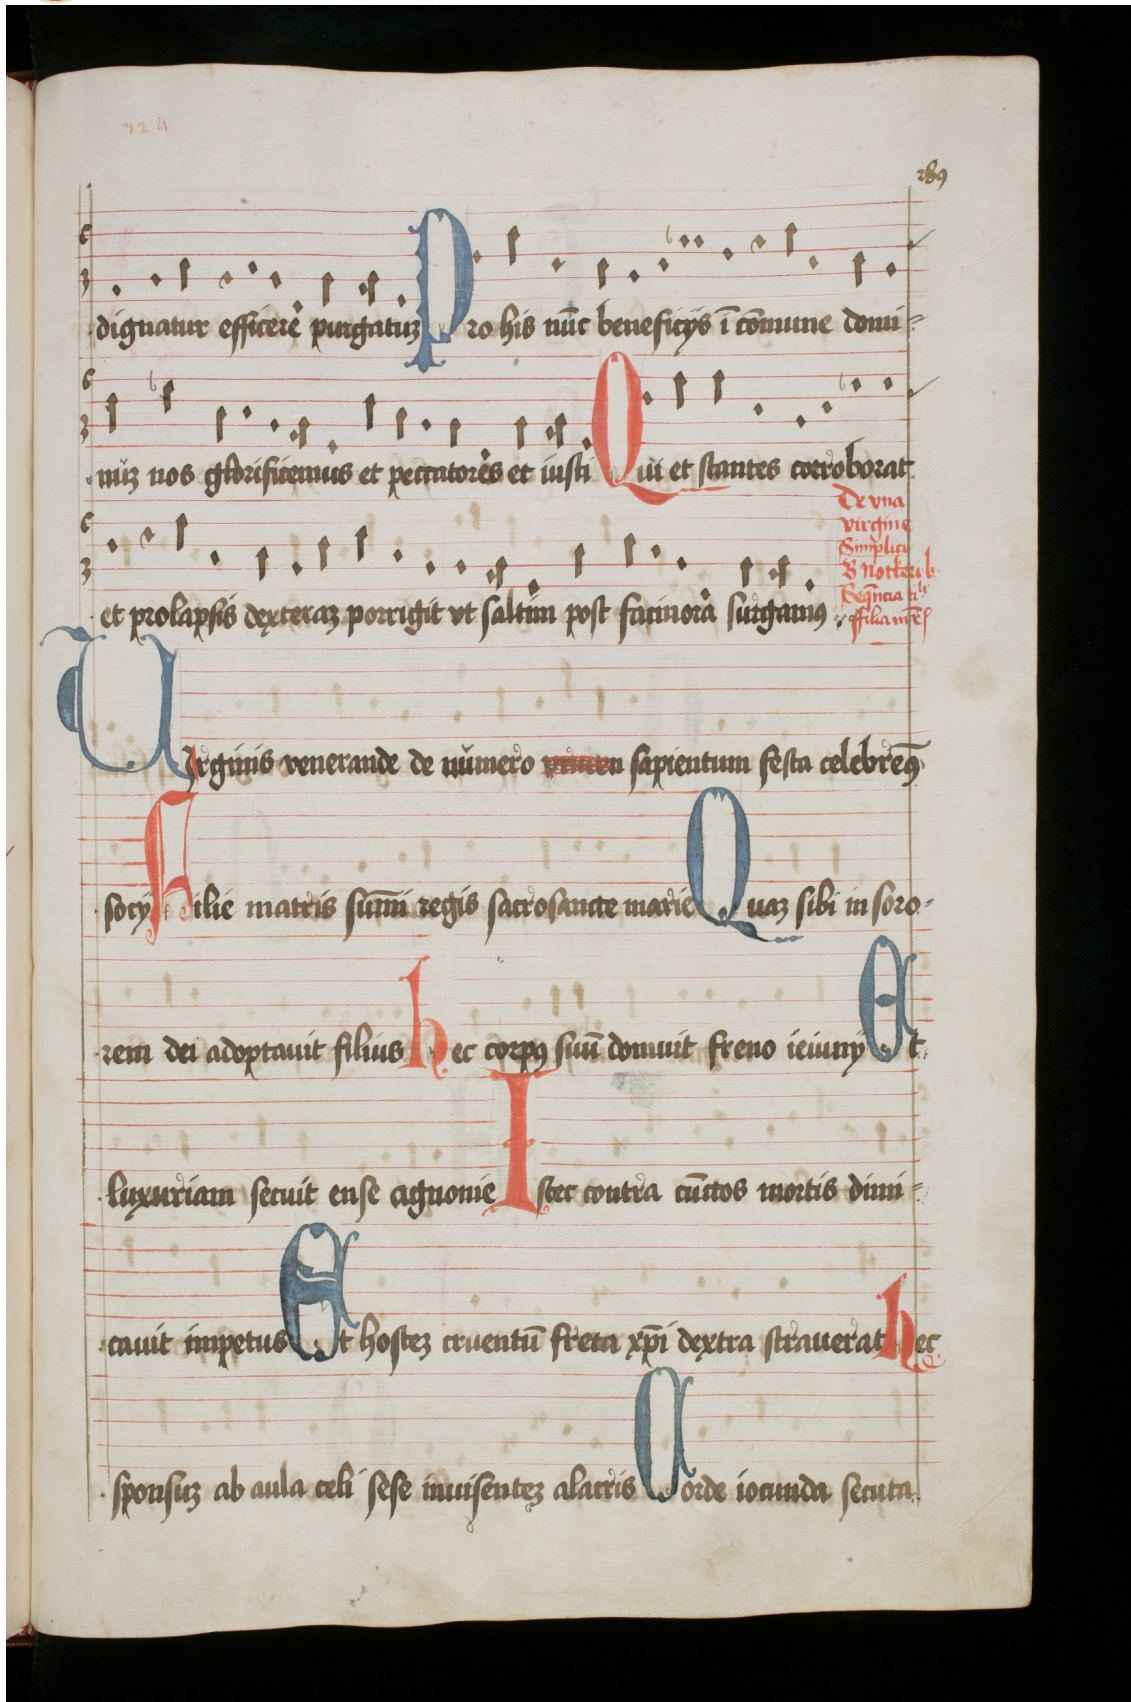 324
dignatur efficere purgatuz Pro his nūc beneficijs ī cōmune domi=
nūz nos glorificemus et peccatores et iusti Qui et stantes corroborat
et prolapsis dexteraz porrigit vt saltim post facinora surgamus
De vna
virgine
Simplici
B Notkerus
Virginis venerande de numero sapientum festa celebremꝰ
socij Filie matris sūmi regis sacrosancte marie Quaz sibi in soro=
rem dei adoptauit filius hec corpꝰ suū domuit freno ieiunij Et
luxuriam secuit ense agnonie Istec contra cūctos mortis dimi=
cauit impetus Et hostez cruentū freta xp̄i dextra strauerat hec
sponsuz ab aula celi sese inuisentez alacris Corde iocunda secuta